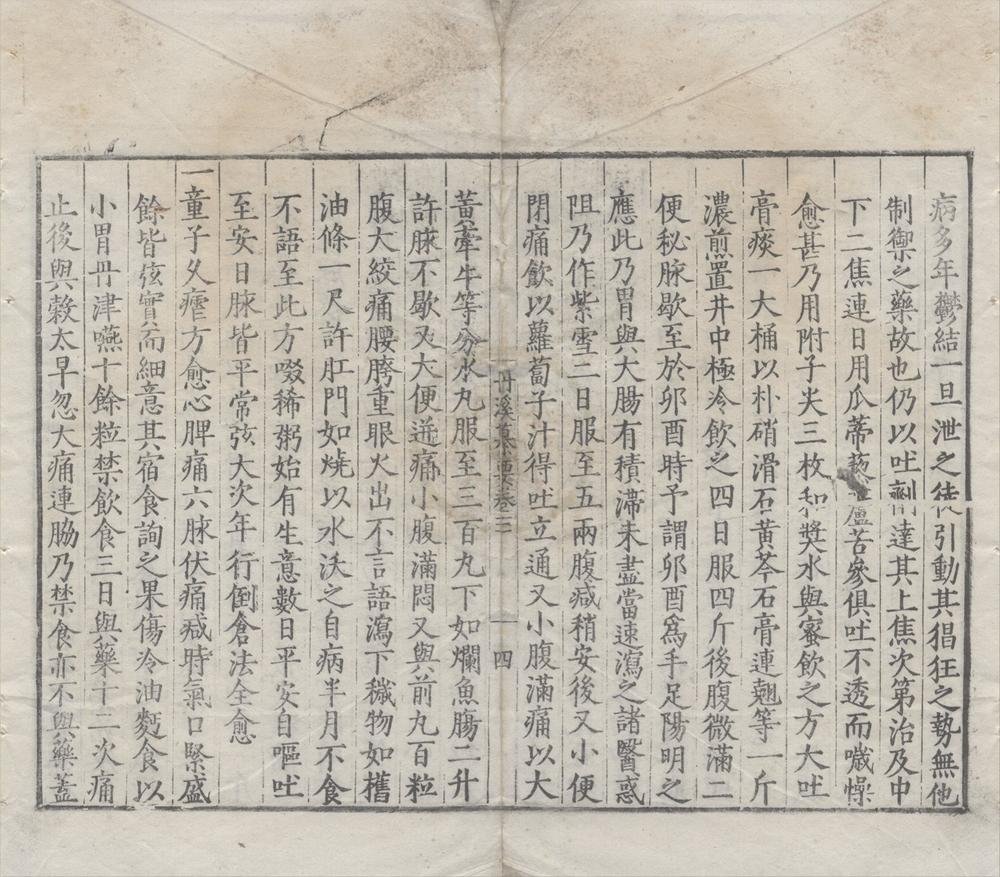 病多年鬱結一旦泄之徒引動其猖狂之勢無他
制禦之藥故也仍以吐劑達其上焦次第治及中
下二焦連日用瓜蒂藜蘆苦參俱吐不透而噦燥
愈甚乃用附子尖三枚和漿水與蜜飲之方大吐
膏痰一大桶以朴硝滑石黃芩石膏連翹等一斤
濃煎置井中極冷飲之四日服四斤後腹微滿二
便秘脉歇至於卯酉時予謂卯酉爲手足陽明之
應此乃胃與大腸有積滯未盡當速瀉之諸醫惑
阻乃作紫雪二日服至五兩腹減稍安後又小便
閉痛飲以蘿蔔子汁得吐立通又小腹滿痛以大
丹溪纂要卷二 四
黃牽牛等分水丸服至三百丸下如爛魚腸二升
許脉不歇又大便迸痛小腹滿悶又與前丸百粒
腹大絞痛腰胯重眼火出不言語瀉下穢物如舊
油條一尺許肛門如燒以水沃之自病半月不食
不語至此方啜稀粥始有生意數日平安自嘔吐
至安日脉皆平常弦大次年行倒倉法全愈
一童子久瘧方愈心脾痛六脉伏痛減時氣口緊盛
餘皆弦實而細意其宿食詢之果傷冷油麪食以
小胃丹津嚥十餘粒禁飲食三日與藥十二次痛
止後與穀太早忽大痛連脇乃禁食亦不與藥蓋